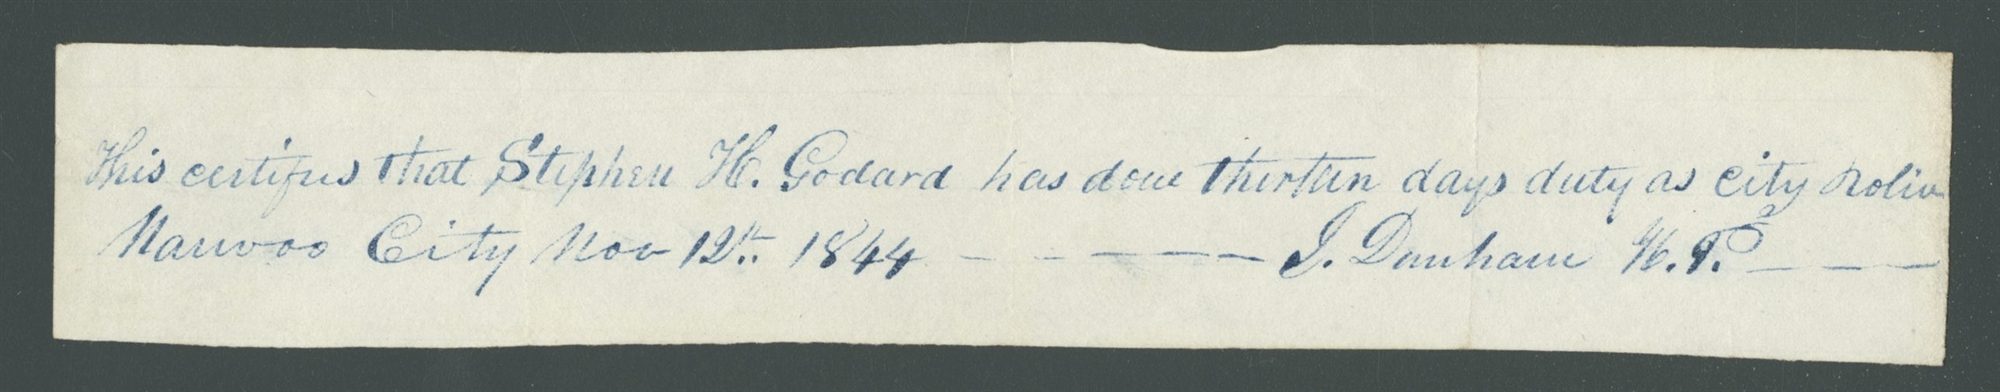 This certifies that Stephen H. Godard has done thirteen days duty as city Police
Nauvoo City Nov 12th. 1844 - - - - - - J. Dunham H. P. - - -